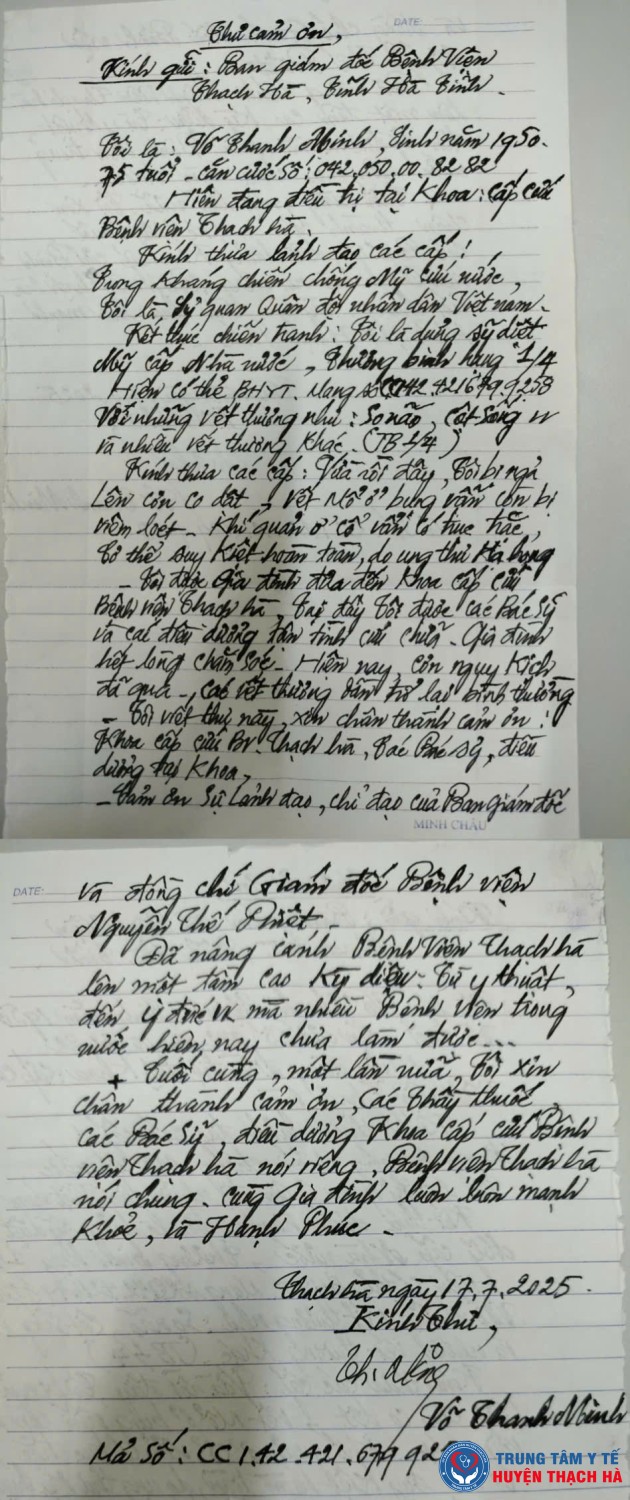 DATE:
Thư cảm ơn,
Kính gửi : Ban giám đốc Bệnh Viện
Thạch Hà, Tỉnh Hà Tĩnh.
Tôi là : Võ Thanh Minh, Sinh năm 1950.
75 tuổi - căn cước số : 042.050.00.82 82
Hiện đang điều trị tại Khoa : Cấp cứu
Bệnh viện Thạch hà.
Kính thưa lảnh đạo các cấp !
Trong kháng chiến chống Mỹ cứu nước,
Tôi là, Sỹ quan Quân đội nhân dân Việt nam -
Kết thúc chiến tranh : Tôi là dụng sỹ diệt
Mỹ cấp Nhà nước, Thương binh hạng 1/4
Hiện có thẻ BHYT. Mang số
Với những vết thương như : Sọ não, Cột sống vv
và nhiều vết thương khác. (TB 1/4)
Kính thưa các cấp : Vừa rồi đây, Tôi bị ngả
Lên cơn co dật - vết Mổ ở bụng vẫn còn bị
viêm loét - Khí quản ở cổ vẩn có trục trặc,
Cơ thể suy kiệt hoàn toàn, do ung thư Hạ họng
- Tôi được Gia đình đưa đến khoa cấp cứu
Bệnh viện Thạch hà, Tại đây Tôi được các Bác Sỹ
và các điều dưỡng tận tình cứu chữa - Gia đình
hết lòng chăm sóc - Hiện nay, cơn nguy kịch
đã qua -, các vết thương dần trở lại bình thường
- Tôi viết thư này, xin chân thành cảm ơn :
Khoa cấp cứu BV. Thạch hà, Các Bác sỹ, điều
dưỡng tại khoa,
- Cảm ơn Sự Lảnh đạo, chỉ đạo của Ban Giám đốc
MINH CHÂU
DATE:
và đồng chí Giám đốc Bệnh viện
Nguyễn Thế Phiệt -
Đã nâng cánh Bệnh Viện Thạch hà
lên một tầm cao Kỳ diệu - Từ y thuật,
đến ý đức mà nhiều Bệnh viện trong
nước hiện nay chưa làm được...
+ Cuối cùng, một lần nữa, Tôi xin
chân thành cảm ơn, các Thầy thuốc,
các Bác Sỹ, điều dưỡng Khoa cấp cứu Bệnh
viện Thạch hà nói riêng, Bệnh viện Thạch hà
nói chung - cùng Gia đình luôn luôn mạnh
Khoẻ, và Hạnh Phúc -
Thạch hà ngày 17.7.2025.
Kính Thư,
Võ Thanh Minh
Mả số : CC 1.42.421.679 925
TRUNG TÂM Y TẾ
HUYỆN THẠCH HÀ